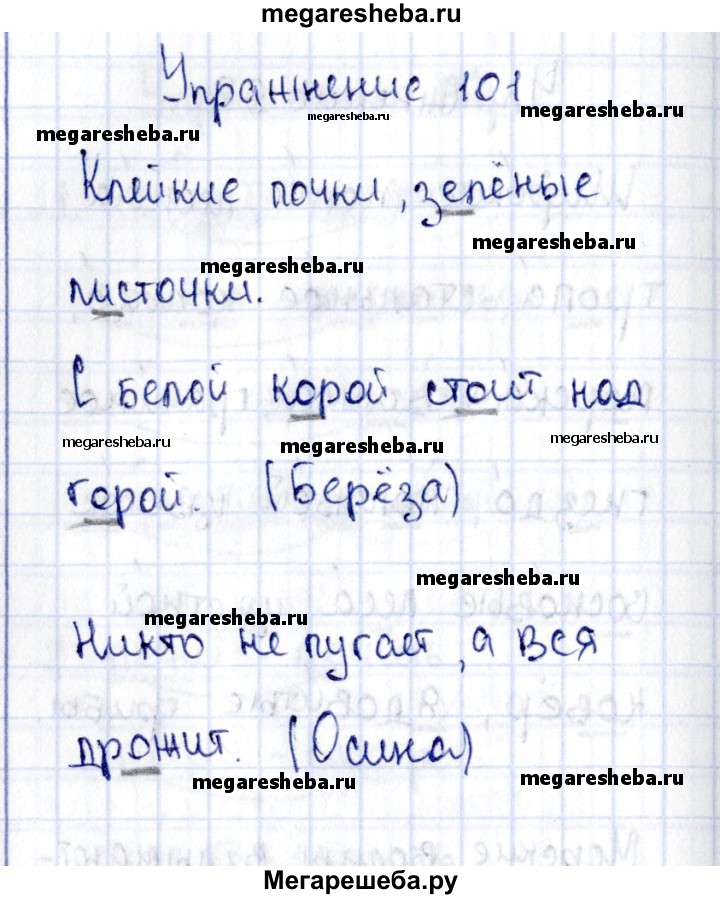 megaresheba.ru
Упражнение 101
megaresheba.ru megaresheba.ru megaresheba.ru
Клейкие почки, зелёные
megaresheba.ru
megaresheba.ru
листочки.
С белой корой стоит над
megaresheba.ru megaresheba.ru megaresheba.ru
горой. (Берёза)
megaresheba.ru
megaresheba.ru
Никто не пугает, а вся
дрожит. (Осина)
megaresheba.ru megaresheba.ru
Мегарешеба.ру